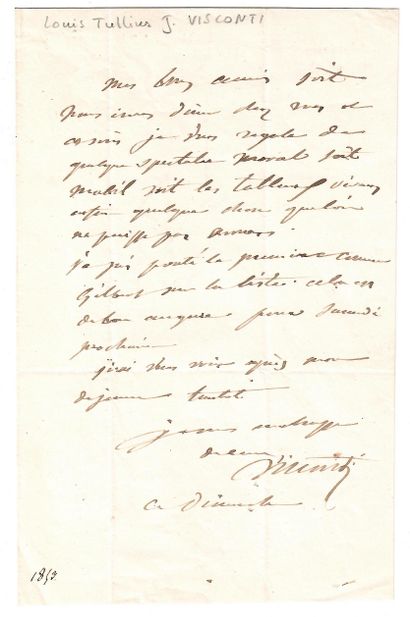 Louis Tullius J. VISCONTI
mes bons amis soit
nous irons diner chez vous et
ce soir je vous regale de
quelque spectacle moral soit
soit les tableaux vivans
enfin quelque chose
ne puisse pas
j'ai la premiere
Gilbert sur la liste. cela est
de bon augure pour samedi
prochain
j'irai vous voir après mon
dejeuner tantôt
je vous
de cœur
Visconti
ce Dimanche
1853